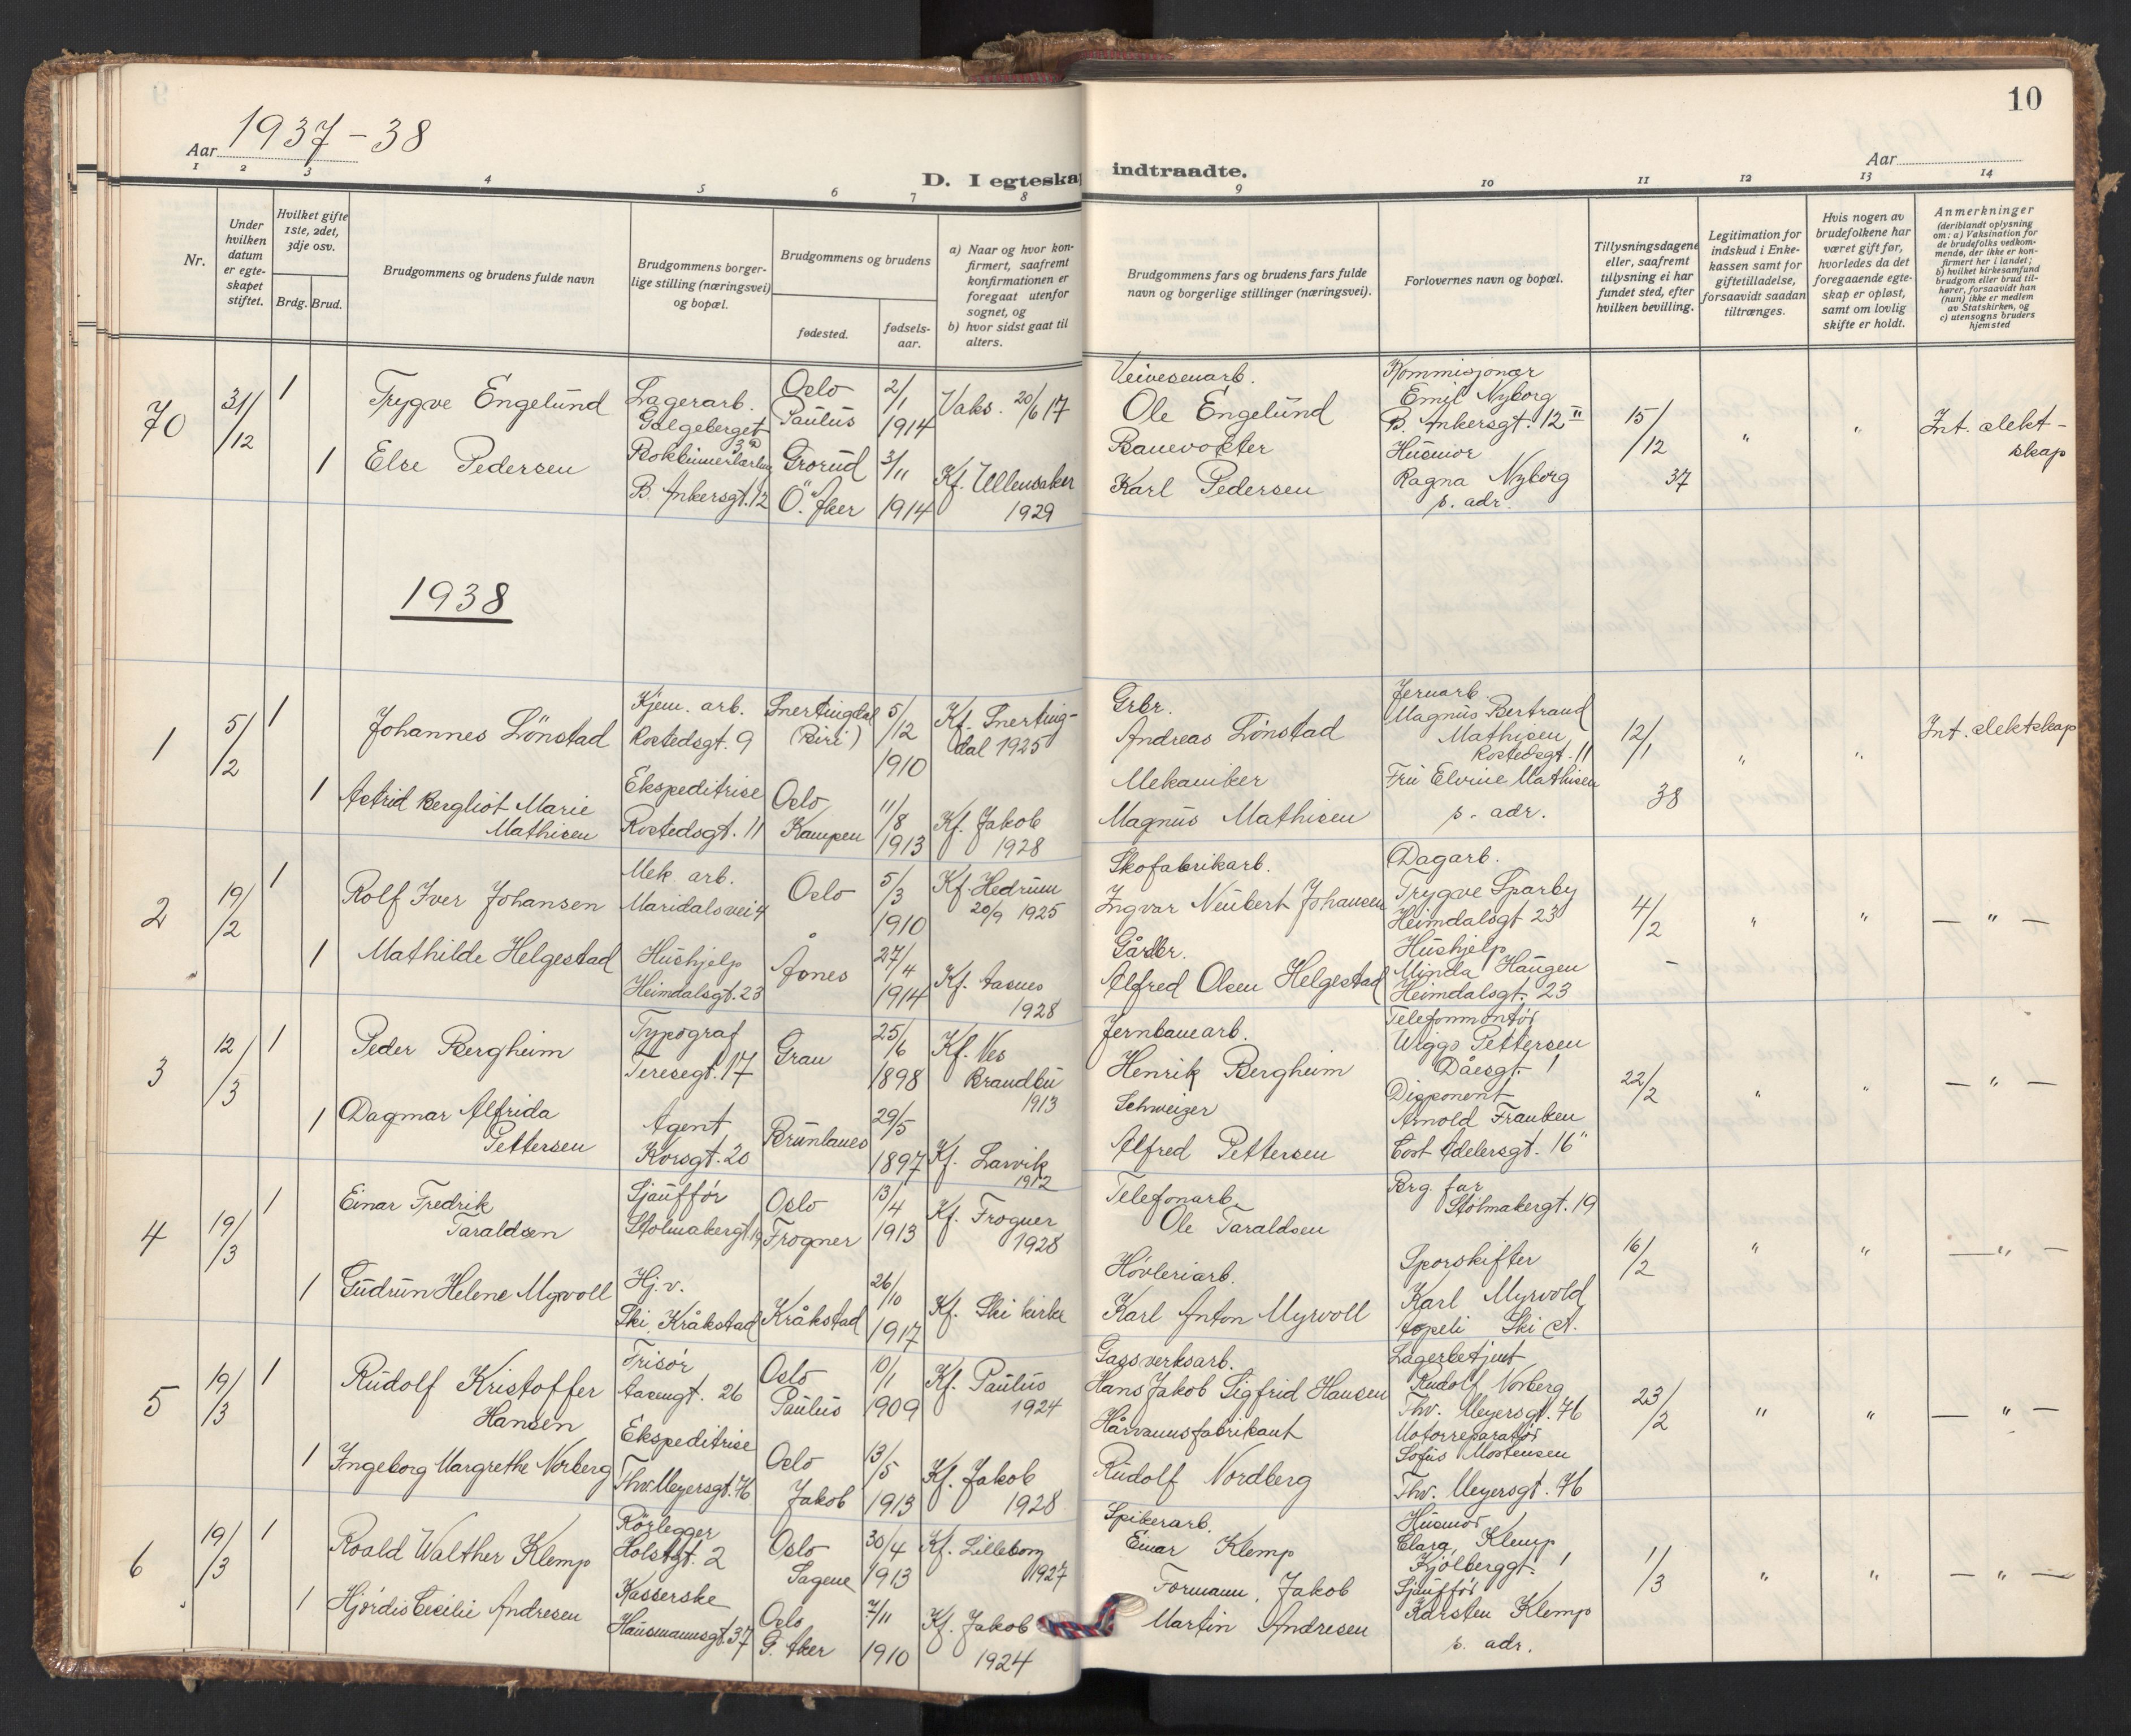 10
Aar 1937-38
Aar
D. I egteskap indtraadte.
1 2 3 4 5 6 7 8 9 10 11 12 13 14
Nr.
Under hvilken datum er egteskapet stiftet.
Hvilket gifte 1ste, 2det, 3dje osv.
Brdg. Brud.
Brudgommens og brudens fulde navn
Brudgommens borgerlige stilling (næringsvei) og bopæl.
Brudgommens og brudens
fødested.
fødselsaar.
a) Naar og hvor konfirmert, saafremt konfirmationen er foregaat utenfor sognet, og
b) hvor sidst gaat til alters.
Brudgommens fars og brudens fars fulde navn og borgerlige stillinger (næringsvei).
Forlovernes navn og bopæl.
Tillysningsdagene eller, saafremt tillysning ei har fundet sted, efter hvilken bevilling.
Legitimation for indskud i Enkekassen samt for giftetilladelse, forsaavidt saadan tiltrænges.
Hvis nogen av brudefolkene har været gift før, hvorledes da det foregaaende egteskap er opløst, samt om lovlig skifte er holdt.
Anmerkninger (deriblandt oplysning om: a) Vaksination for de brudefolks vedkommende, der ikke er konfirmert her i landet; b) hvilket kirkesamfund brudgom eller brud tilhører, forsaavidt han (hun) ikke er medlem av Statskirken, og c) utensogns bruders hjemsted
70 31/12 1 Trygve Engelund Lagerarb. Galgeberget 3a Oslo Paulus 2/1 1914 Vaks. 20/6 17 Veivesenarb. Ole Engelund Kommisjonær Emil Nyborg B. Ankersgt. 12 II 15/12 37 " " Int. slektskap
1 Else Pedersen B. Ankersgt. 12 Grorud Ö. Aker 3/11 1914 Kf. Ullensaker 1929 Banevokter Karl Pedersen Husmor Ragna Nyborg s. adr.
1938
1 5/2 1 Johannes Lönstad Kjem. arb. Rostedsgt. 9 Snertingdal (Biri) 5/12 1910 Kf. Snertingdal 1925 Grbr. Andreas Lönstad Jernarb. Magnus Bertrand Mathisen Rostedsgt. 11 12/1 38 " " Int. slektskap
1 Astrid Bergliot Marie Mathisen Ekspeditrise Rostedsgt. 11 Oslo Kampen 11/8 1913 Kf. Jakob 1928 Mekaniker Magnus Mathisen Fru Elvine Mathisen s. adr.
2 19/2 1 Rolf Iver Johansen Mek. arb. Maridalsvei 4 Oslo 5/3 1910 Kf. Hedrum 20/9 1925 Skofabrikarb. Ingvar Neubert Johansen Dagarb. Trygve Sparby Heimdalsgt 23 4/2 " " — " —
1 Mathilde Helgestad Hushjelp Heimdalsgt. 23 Åsnes 27/4 1914 Kf. Aasnes 1928 Gårdbr. Alfred Olsen Helgestad Hushjelp Minda Haugen Heimdalsgt. 23
3 12/3 1 Peder Bergheim Typograf Teresegt. 17 Gran 25/6 1898 Kf. Nes Brandbu 1913 Jernbanearb. Henrik Bergheim Telefonmontör Wiggo Pettersen Dåesgt. 1 22/2 " " — " —
1 Dagmar Alfrida Pettersen Agent Korsgt. 20 Brunlanes 29/5 1897 Kf. Larvik 1912 Schweizer Alfred Pettersen Disponent Arnold Franken Cort Adelersgt. 16"
4 19/3 1 Einar Fredrik Taraldsen Sjaufför Stolmakergt 19 Oslo Frogner 13/4 1913 Kf. Frogner 1928 Telefonarb. Ole Taraldsen Brg. far Stolmakergt. 19 16/2 " " — " —
1 Gudrun Helene Myrvoll Hj. v. Ski, Kråkstad Kråkstad 26/10 1917 Kf. Ski kirke Hövleriarb. Karl Anton Myrvoll Sporskifter Karl Myrvold Ski st.
5 19/3 1 Rudolf Kristoffer Hansen Frisör Aasengt. 26 Oslo Paulus 10/1 1909 Kf. Paulus 1924 Gassverksarb. Hans Jakob Sigfrid Hansen Lagerbetjent Rudolf Norberg Thv. Meyersgt. 76 23/2 " " — " —
1 Ingeborg Margrethe Norberg Ekspeditrise Thv. Meyersgt. 76 Oslo Jakob 13/5 1913 Kf. Jakob 1928 Hårvannsfabrikant Rudolf Nordberg Motorreparatör Sofus Mortensen Thv. Meyersgt. 76
6 19/3 1 Roald Walther Klemp Rörlegger Holstgt. 2 Oslo Sagene 30/4 1913 Kf. Lilleborg 1927 Spikerarb. Einar Klemp Husmor Clara Klemp Kjölberggt. 1 1/3 " " — " —
1 Hjördis Cecilie Andresen Kasserske Hausmannsgt. 37 Oslo G. Aker 7/11 1910 Kf. Jakob 1924 Formann, Jakob Martin Andresen Sjaufför Karsten Klemp s. adr.